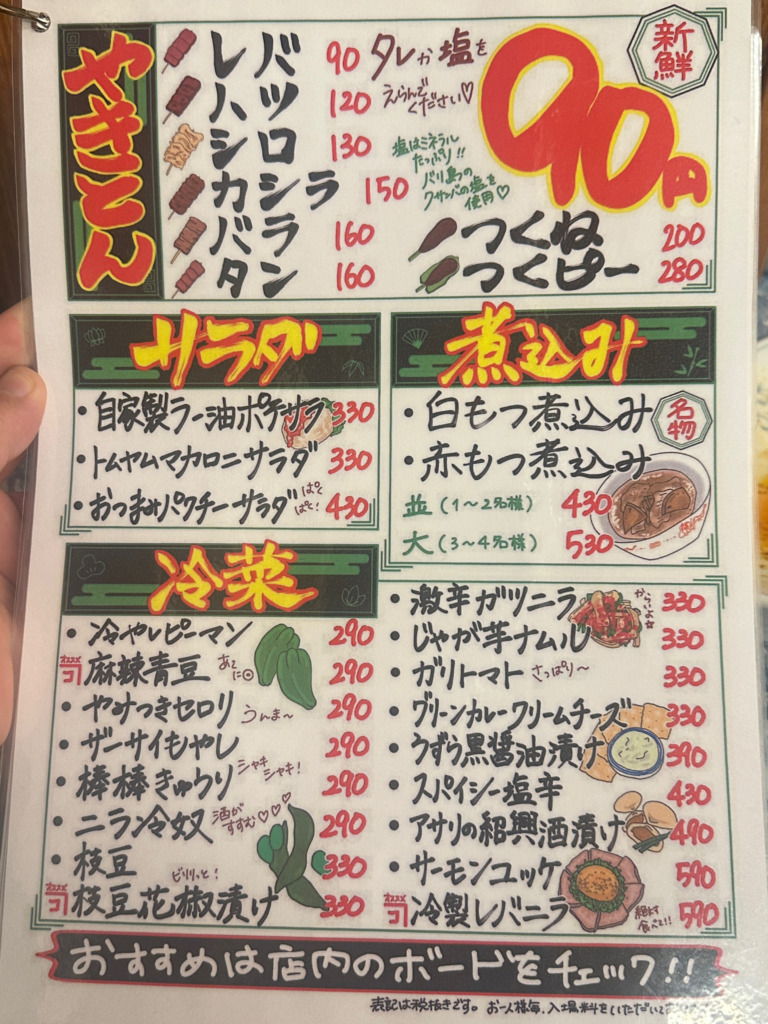 やきとん
新鮮
90円
レバ 90
ハツ 120
シロ 130
カシラ 150
バラ 160
タン 160
タレか塩を
えらんで
ください♡
塩はミネラル
たっぷり!!
バリ島の
クサンバの塩を
使用♡
つくね 200
つくピー 280
サラダ
・自家製ラー油ポテサラ 330
・トムヤムマカロニサラダ 330
・おつまみパクチーサラダ ぱくぱく! 430
煮込み
・白もつ煮込み
名物
・赤もつ煮込み
並(1〜2名様) 430
大(3〜4名様) 530
冷菜
・冷やしピーマン 290
オススメ 麻辣青豆 あてに◎ 290
・やみつきセロリ うんま〜 290
・ザーサイもやし 290
・棒棒きゅうり シャキシャキ! 290
・ニラン冷奴 酒がすすむ♡♡♡ 290
・枝豆 330
ビリリッと!
オススメ 枝豆花椒漬け 330
・激辛ガツニラ からいよ☆ 330
・じゃが芋ナムル 330
・ガリトマト さっぱり〜 330
・グリーンカレークリームチーズ 330
・うずら黒醤油漬け 390
・スパイシー塩辛 430
・アサリの紹興酒漬け 490
・サーモンユッケ 590
オススメ 冷製レバニラ 絶対食べて!! 590
おすすめは店内のボードをチェック!!
表記は税抜きです。お一人様毎、入場料をいただいて